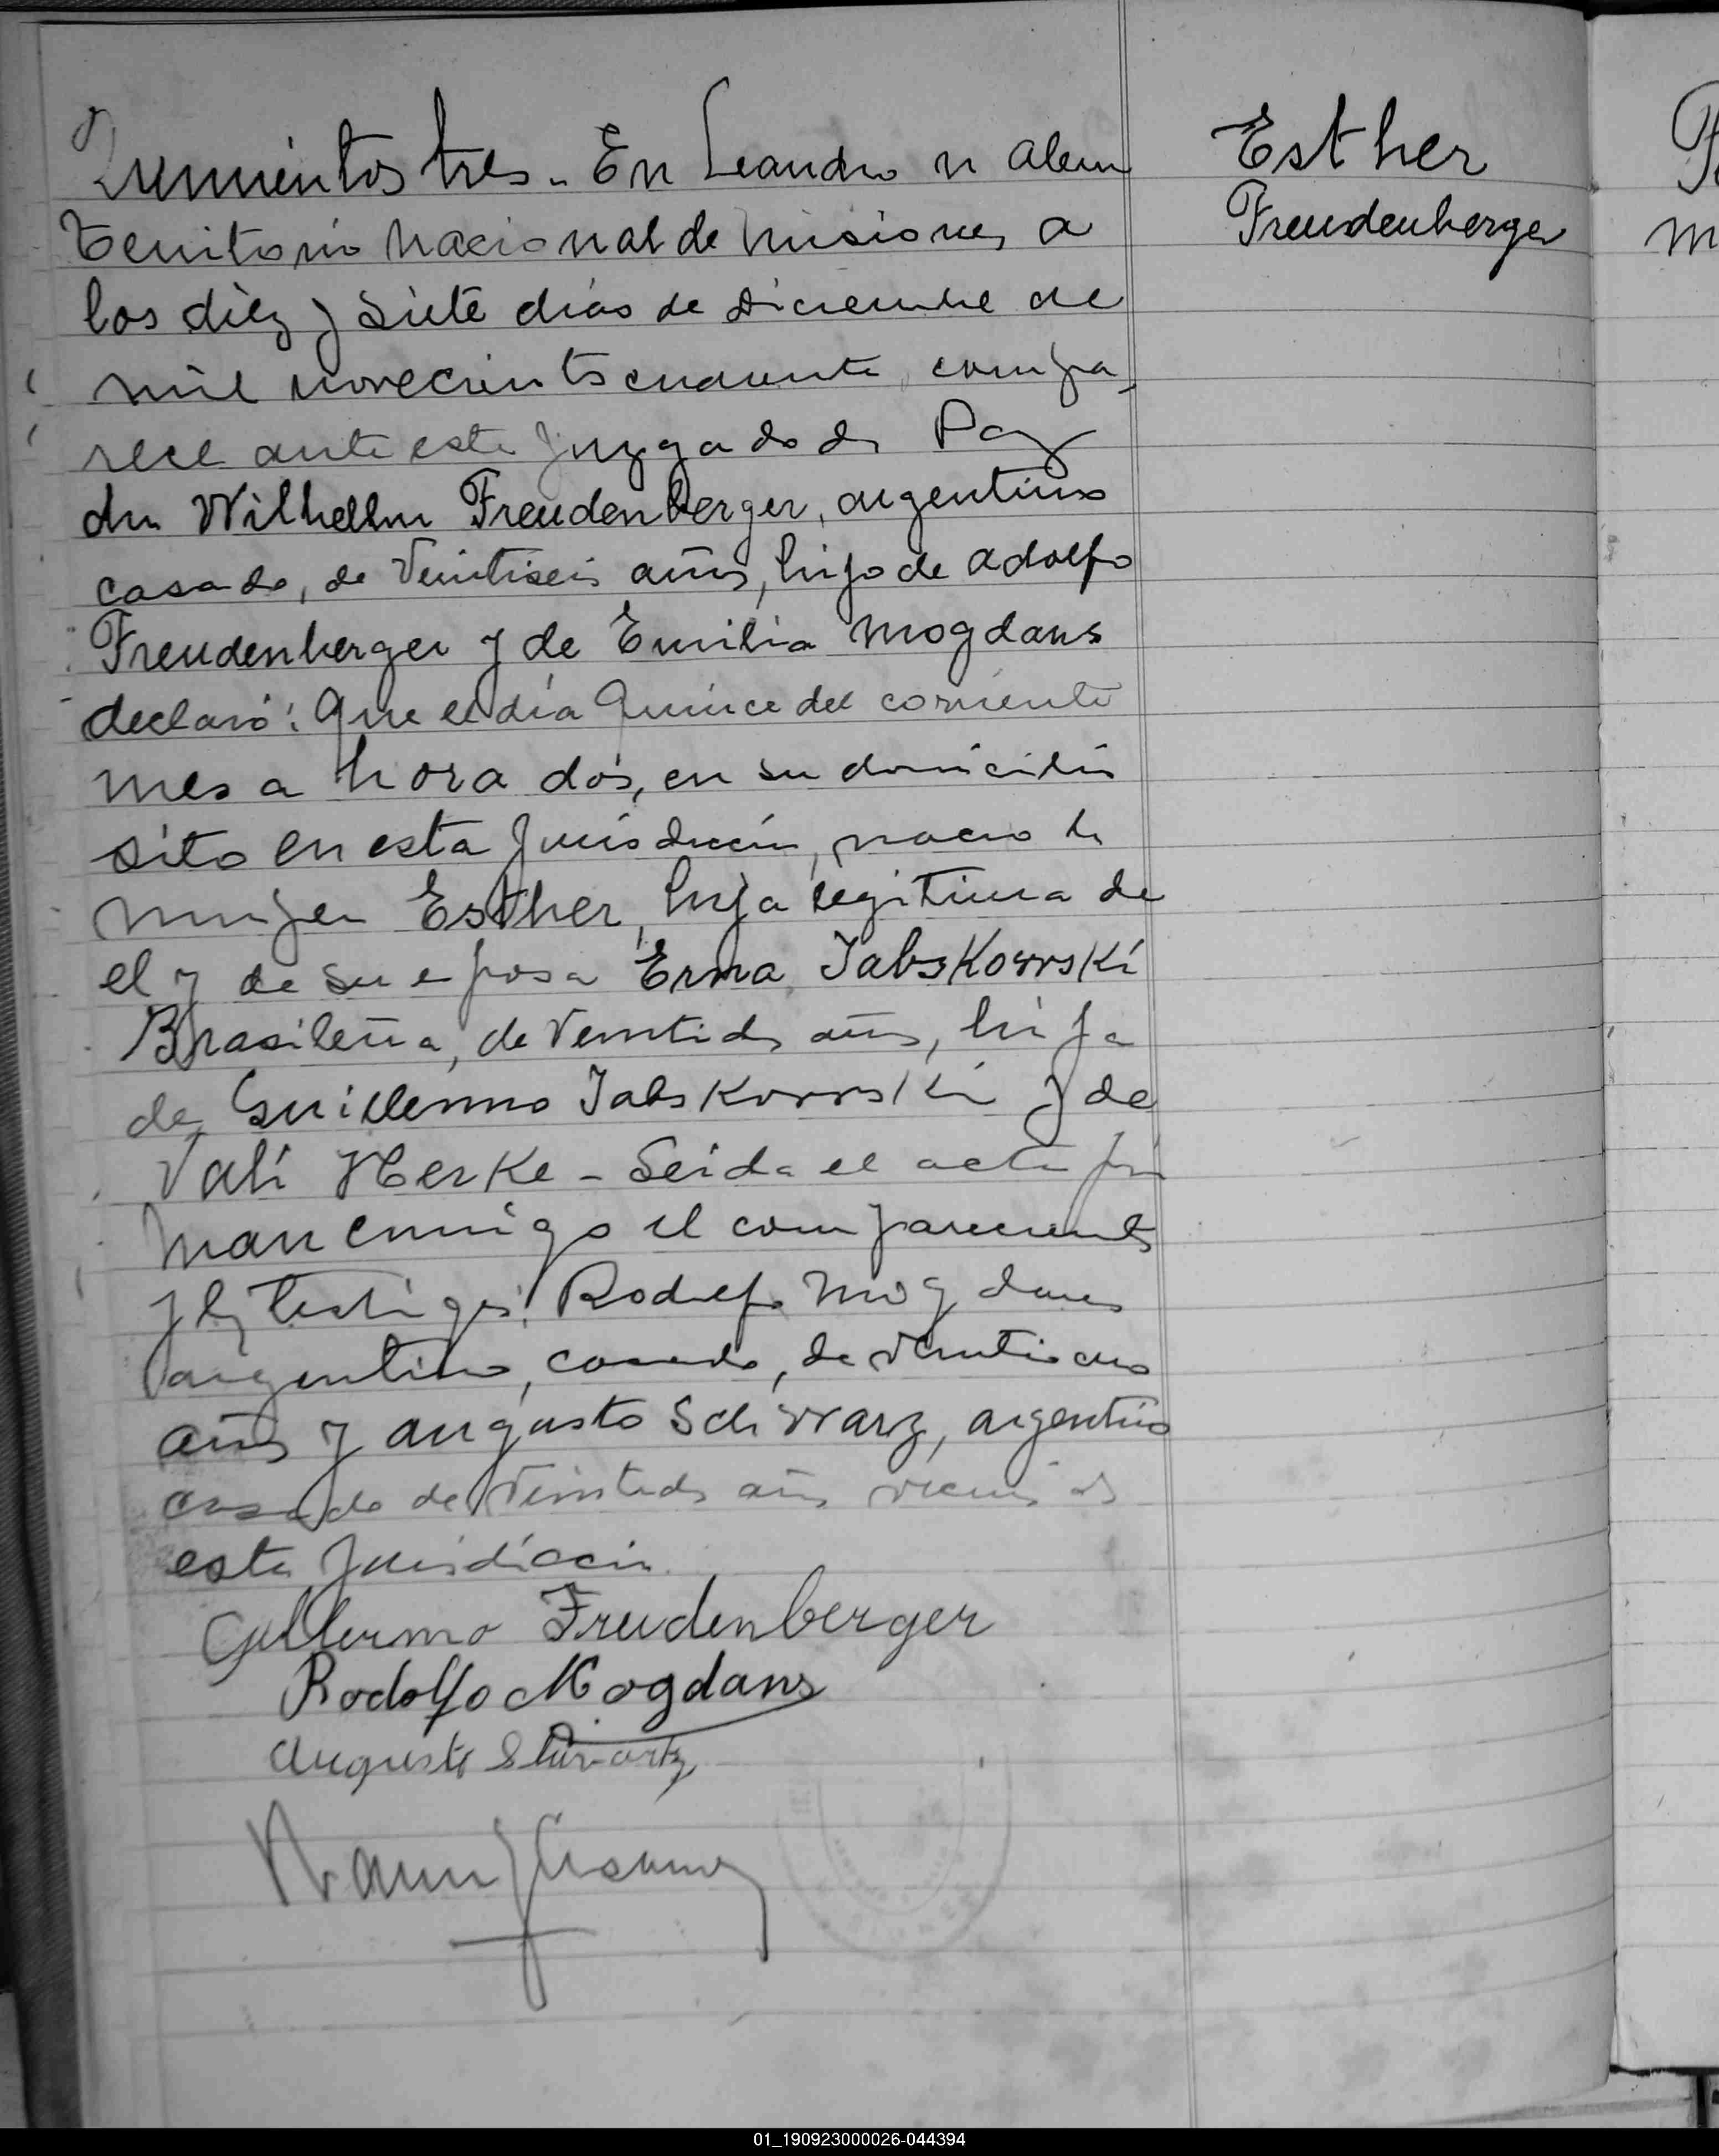 Quinientos tres. En Leandro n Alem
Territorio Nacional de Misiones, a
los diez y siete dias de Diciembre de
mil novecientos cuarenta, compa-
rece ante este Juzgado de Paz
don Wilhellm Freudenberger, argentino
casado, de veintiseis años, hijo de Adolfo
Freudenberger y de Emilia Mogdans
declaró: Que el día Quince del corriente
mes a hora dos, en su domicilio
sito en esta Jurisdicción, nacio la
mujer Esther, hija legitima de
el y de su esposa Erma Jabskowski
Brasileña, de veintidos años, hija
de Guillermo Jabskowski y de
Vali Herke - Leida el acta fir
man conmigo el compareciente
y los testigos: Rodolfo Mogdans
argentino, casado, de
años y Augusto Schwarz, argentino
casado de veintidos años vecinos de
esta Jurisdiccion.
Guillermo Freudenberger
Rodolfo Mogdans
Augusto
Esther
Freudenberger
M
01_190923000026-044394